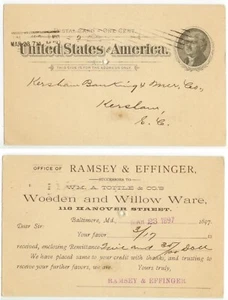 United States of America.
THIS SIDE IS FOR THE ADDRESS ONLY.
Kershaw Banking & Mer. Co,
Kershaw,
S. C.
OFFICE OF RAMSEY & EFFINGER,
SUCCESSORS TO
WM. A. TOTTLE & CO'S
Wooden and Willow Ware,
116 HANOVER STREET.
Baltimore, Md., 23 1897 189
Dear Sir:
Your favor 3/17
received, enclosing Remittance Five and Doll
We have placed same to your credit with thanks, and trusting to
receive your further favors, we are Yours truly,
RAMSEY & EFFINGER